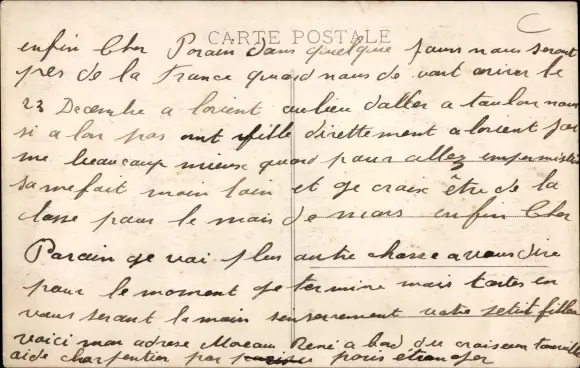 CARTE POSTALE
enfin Cher Parain dans quelque jours nous seront
pres de la France quand nous de vont ariver le
23 Decembre a lorient au lieu daller a toulon nous
si a lon pas ont file direttement a lorient jai
me beaucoup mieux quand pour allez empermission
sa me fait moin loin et je croix être de la
classe pour le mois de mars enfin Cher
Parain je vai plus autre chosse a vous dire
pour le moment je termine mais toutes en
vous serant la main senserement votre petit filleu
voici mon adrese Moreau René a bord du croiseur tourville
aide charpentier par paris étranger